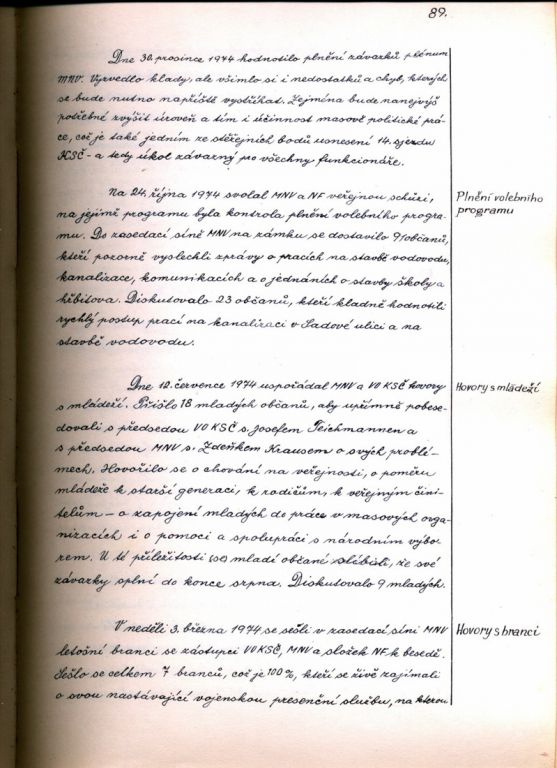 89.
Dne 30. prosince 1974 hodnotilo plnění závazků plénum
MNV. Vyzvedlo klady, ale všimlo si i nedostatků a chyb, kterých
se bude nutno napříště vystříhat. Zejména bude nanejvýš
potřebné zvýšit úroveň a tím i účinnost masově politické prá-
ce, což je také jedním ze stěžejních bodů usnesení 14. sjezdu
KSČ - a tedy úkol závazný pro všechny funkcionáře.
Na 24. října 1974 svolal MNV a NF veřejnou schůzi,
na jejímž programu byla kontrola plnění volebního progra-
mu. Do zasedací síně MNV na zámku se dostavilo 91 občanů,
kteří pozorně vyslechli zprávy o pracích na stavbě vodovodu,
kanalizace, komunikacích a o jednáních o stavby školy a
hřbitova. Diskutovalo 23 občanů, kteří kladně hodnotili
rychlý postup prací na kanalizaci v Sadové ulici a na
stavbě vodovodu.
Plnění volebního
programu
Dne 12. července 1974 uspořádal MNV a VO KSČ hovory
s mládeží. Přišlo 18 mladých občanů, aby upřímně pobese-
dovali s předsedou VO KSČ s. Josefem Teichmannen a
s předsedou MNV s. Zdeňkem Krausem o svých problé-
mech. Hovořilo se o chování na veřejnosti, o poměru
mládeže k starší generaci, k rodičům, k veřejným čini-
telům - o zapojení mladých do práce v masových orga-
nizacích i o pomoci a spolupráci s národním výbo-
rem. U té příležitosti (se) mladí občané slíbili, že své
závazky splní do konce srpna. Diskutovalo 9 mladých.
Hovory s mládeží
V neděli 3. března 1974 se sešli v zasedací síni MNV
letošní branci se zástupci VO KSČ, MNV a složek NF k besedě.
Sešlo se celkem 7 branců, což je 100 %, kteří se živě zajímali
o svou nastávající vojenskou presenční službu, na kterou
Hovory s branci